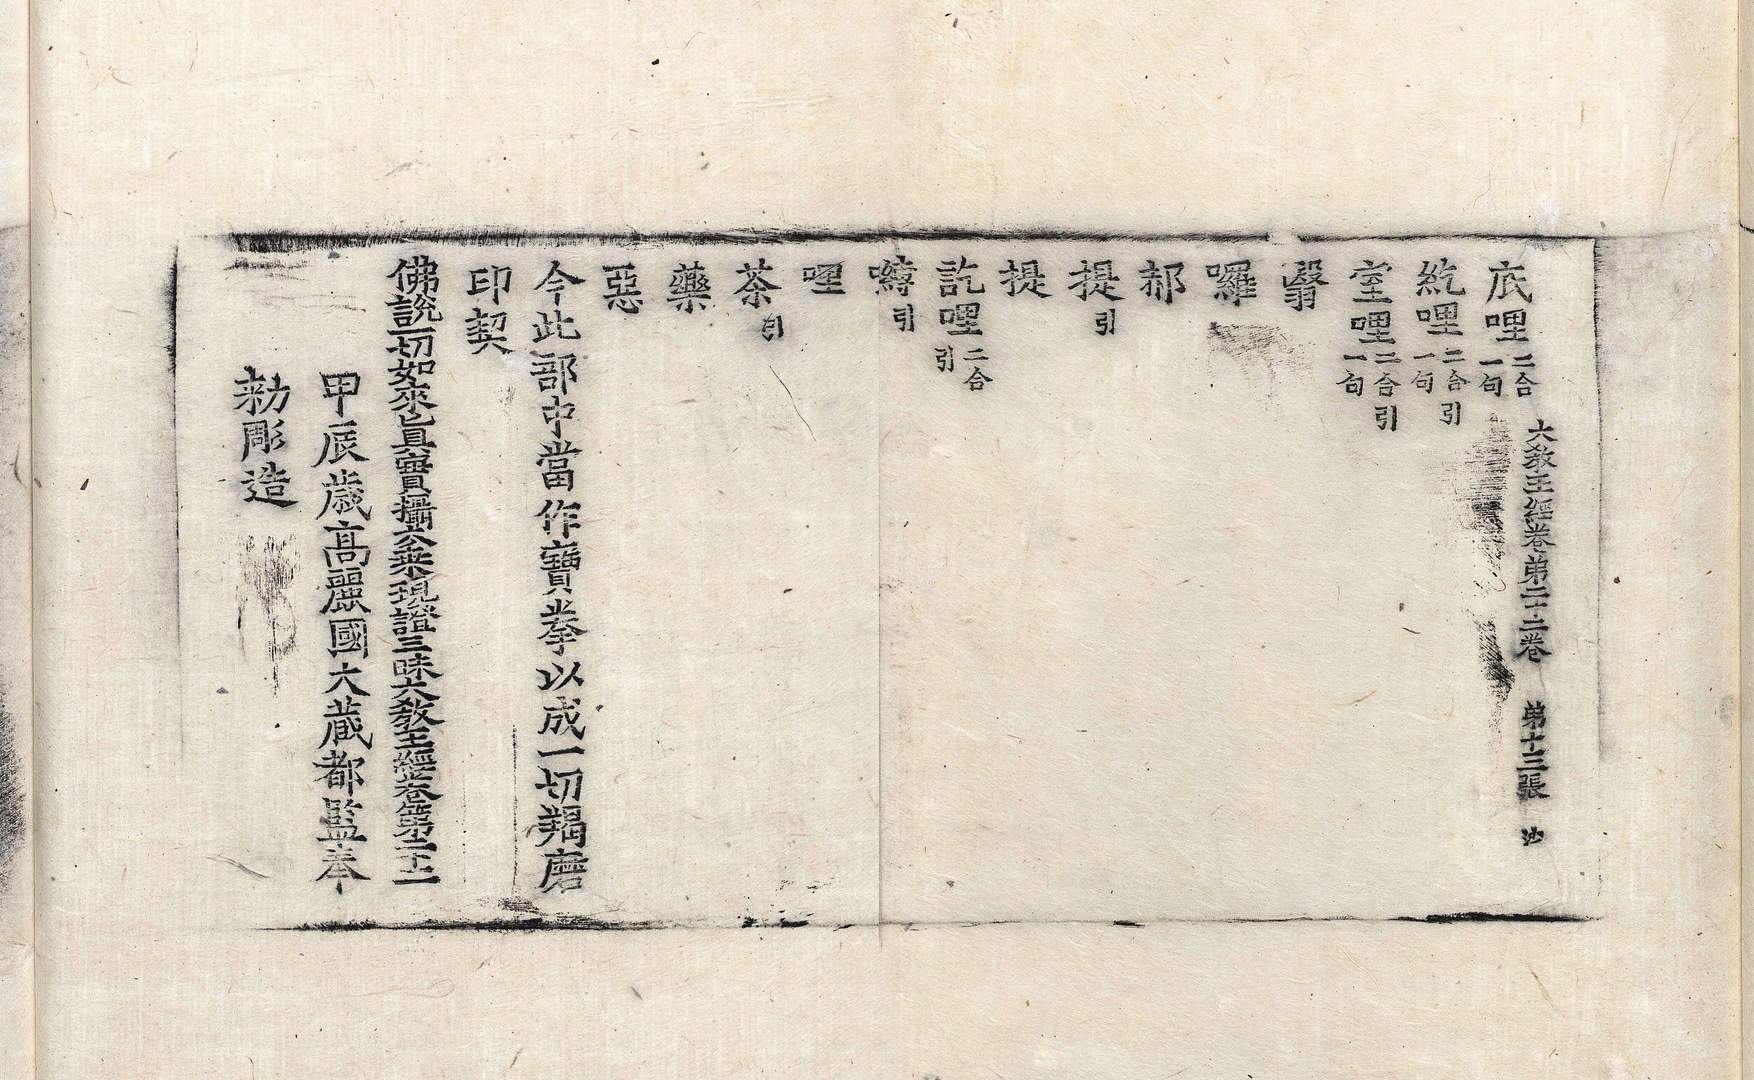 底哩二合一句
大敎王經卷第二十二卷 第十三張 沙
紇哩二合引一句
室哩二合引一句
翳
囉
郝
提引
提
訖哩二合引
嚩引
哩
茶引
藥
惡
今此部中當作寶拳以成一切羯磨
印契
佛說一切如來眞實攝大乘現證三昧大敎王經卷第二十二
甲辰歲高麗國大藏都監奉
勅彫造